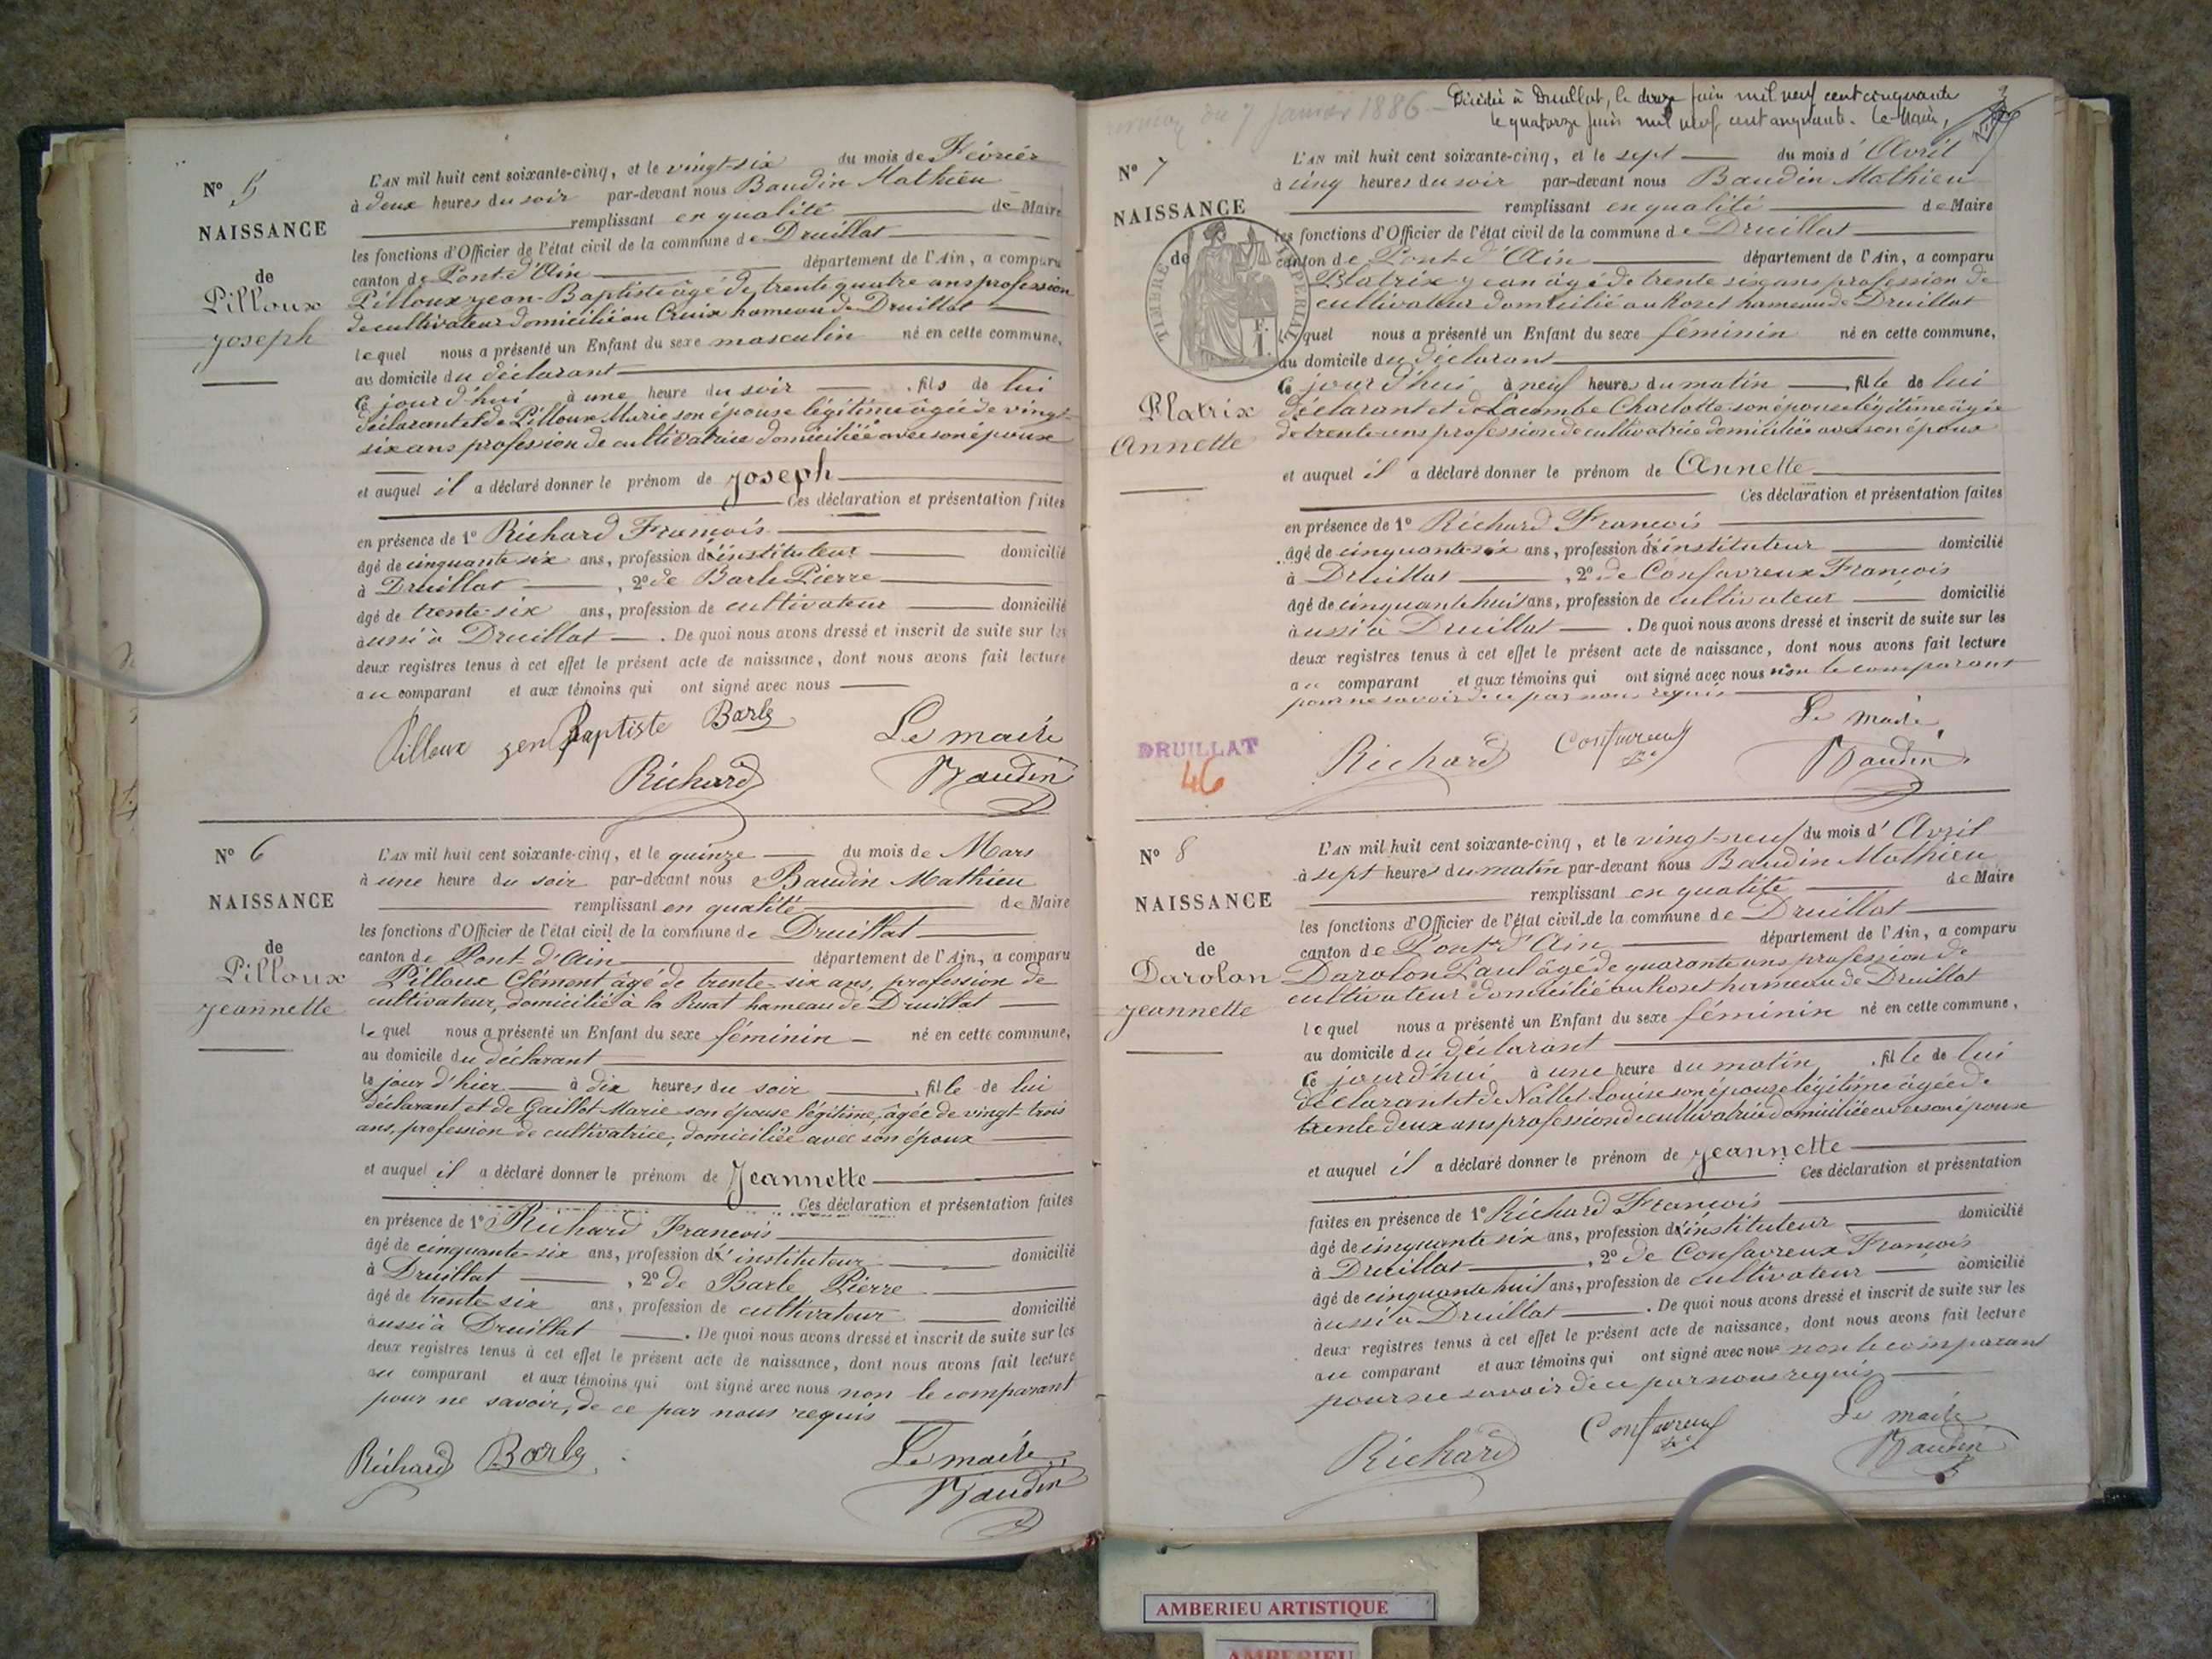 N° 5
NAISSANCE
de
Pilloux
Joseph
L'AN mil huit cent soixante-cinq, et le vingt-six du mois de Février
à deux heures du soir par-devant nous Baudin Mathieu
remplissant en qualité de Maire
les fonctions d'Officier de l'état civil de la commune de Druillat
canton de Pont-d'Ain département de l'Ain, a comparu
Pilloux Jean-Baptiste âgé de trente quatre ans profession
de cultivateur domicilié au Cruix hameau de Druillat
lequel nous a présenté un Enfant du sexe masculin né en cette commune,
au domicile du déclarant
ce jourd'hui à une heure du soir, fils de lui
déclarant et de Pilloux Marie son épouse légitime âgée de vingt-
six ans profession de cultivatrice domiciliée avec son époux
et auquel il a déclaré donner le prénom de Joseph
Ces déclaration et présentation faites
en présence de 1° Richard François
âgé de cinquante six ans, profession d'instituteur domicilié
à Druillat, 2° de Barle Pierre
âgé de trente-six ans, profession de cultivateur domicilié
aussi à Druillat. De quoi nous avons dressé et inscrit de suite sur les
deux registres tenus à cet effet le présent acte de naissance, dont nous avons fait lecture
au comparant et aux témoins qui ont signé avec nous
Pilloux jen Baptiste Barle Le maire
Richard Baudin
N° 6
NAISSANCE
de
Pilloux
Jeannette
L'AN mil huit cent soixante-cinq, et le quinze du mois de Mars
à une heure du soir par-devant nous Baudin Mathieu
remplissant en qualité de Maire
les fonctions d'Officier de l'état civil de la commune de Druillat
canton de Pont-d'Ain département de l'Ain, a comparu
Pilloux Clément âgé de trente-six ans, profession de
cultivateur, domicilié à la Ruat hameau de Druillat
lequel nous a présenté un Enfant du sexe féminin né en cette commune,
au domicile du déclarant
le jour d'hier à dix heures du soir, fille de lui
déclarant et de Gaillot Marie son épouse légitime, âgée de vingt trois
ans, profession de cultivatrice, domiciliée avec son époux
et auquel il a déclaré donner le prénom de Jeannette
Ces déclaration et présentation faites
en présence de 1° Richard François
âgé de cinquante-six ans, profession d'instituteur domicilié
à Druillat, 2° de Barle Pierre
âgé de trente-six ans, profession de cultivateur domicilié
aussi à Druillat. De quoi nous avons dressé et inscrit de suite sur les
deux registres tenus à cet effet le présent acte de naissance, dont nous avons fait lecture
au comparant et aux témoins qui ont signé avec nous non le comparant
pour ne savoir, de ce par nous requis
Richard Barle Le maire
Baudin
du 7 Janvier 1886
Décédée à Druillat, le douze juin mil neuf cent cinquante
le quatorze juin mil neuf cent cinquante. Le Maire,
N° 7
NAISSANCE
de
TIMBRE IMPERIAL
Platrix
Annette
L'AN mil huit cent soixante-cinq, et le sept du mois d'Avril
à cinq heures du soir par-devant nous Baudin Mathieu
remplissant en qualité de Maire
les fonctions d'Officier de l'état civil de la commune de Druillat
canton de Pont d'Ain département de l'Ain, a comparu
Platrix Jean âgé de trente six ans profession de
cultivateur domicilié au Roset hameau de Druillat
lequel nous a présenté un Enfant du sexe féminin né en cette commune,
au domicile du déclarant
ce jourd'hui à neuf heures du matin, fille de lui
déclarant et de Lacombe Charlotte son épouse légitime âgée
de trente ans profession de cultivatrice domiciliée avec son époux
et auquel il a déclaré donner le prénom de Annette
Ces déclaration et présentation faites
en présence de 1° Richard François
âgé de cinquante-six ans, profession d'instituteur domicilié
à Druillat, 2° de Confavreux François
âgé de cinquante huit ans, profession de cultivateur domicilié
aussi à Druillat. De quoi nous avons dressé et inscrit de suite sur les
deux registres tenus à cet effet le présent acte de naissance, dont nous avons fait lecture
au comparant et aux témoins qui ont signé avec nous non le comparant
pour ne savoir de ce par nous requis
DRUILLAT
46
Richard Confavreux Le maire
Baudin
N° 8
NAISSANCE
de
Darolon
Jeannette
L'AN mil huit cent soixante-cinq, et le vingt-neuf du mois d'Avril
à sept heures du matin par-devant nous Baudin Mathieu
remplissant en qualité de Maire
les fonctions d'Officier de l'état civil de la commune de Druillat
canton de Pont-d'Ain département de l'Ain, a comparu
Darolon Paul âgé de quarante ans profession de
cultivateur domicilié au Roset hameau de Druillat
lequel nous a présenté un Enfant du sexe féminin né en cette commune,
au domicile du déclarant
ce jourd'hui à une heure du matin, fille de lui
déclarant et de Nallet Louise son épouse légitime âgée de
trente deux ans profession de cultivatrice domiciliée avec son époux
et auquel il a déclaré donner le prénom de Jeannette
Ces déclaration et présentation
faites en présence de 1° Richard François
âgé de cinquante six ans, profession d'instituteur domicilié
à Druillat, 2° de Confavreux François
âgé de cinquante huit ans, profession de cultivateur domicilié
aussi à Druillat. De quoi nous avons dressé et inscrit de suite sur les
deux registres tenus à cet effet le présent acte de naissance, dont nous avons fait lecture
au comparant et aux témoins qui ont signé avec nous non le comparant
pour ne savoir de ce par nous requis
Richard Confavreux Le maire
Baudin
AMBERIEU ARTISTIQUE
AMBERIEU